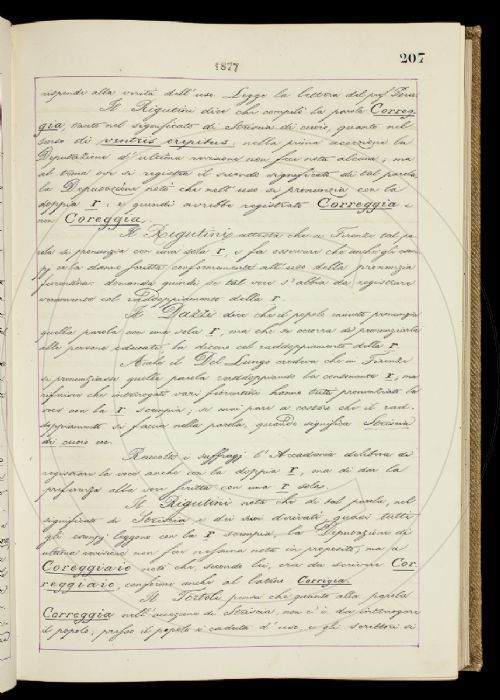 207
1877
risponde alla verità dell'uso. Legge la lettera del prof.
Il Rigutini dice che compilò la parola Correg-
gia, tanto nel significato di Striscia di cuoio, quanto nel
senso di ventris crepitus; nella prima accezione la
Deputazione d'ultima revisione non fece nota alcuna; ma
al tema ove si registra il secondo significato di tal parola
la Deputazione notò che nell'uso si pronunzia con la
doppia r; e quindi avrebbe registrato Correggia e
non Coreggia.
Il Rigutini attesta che a Firenze tal pa-
rola si pronunzia con una sola r, e fa osservare che anche gli esem-
pj ce la danno scritta conformemente all'uso della pronunzia
fiorentina: domanda quindi se tal voce s'abbia da registrare
veramente col raddoppiamento della r.
Il Dazzi dice che il popolo minuto pronunzia
quella parola con una sola r, ma che se occorra di pronunziarla
alle persone educate, la dicono col raddoppiamento della r.
Anche il Del Lungo credeva che in Firenze
si pronunziasse quella parola raddoppiando la consonante r, ma
riferisce che interrogati vari fiorentini hanno tutti pronunziata la
voce con la r scempia; se mai pare a costoro che il rad-
doppiamento si faccia nella parola, quando significa Striscia
di cuoio ec.
Raccolti i suffragj l'Accademia delibera di
registrare la voce anche con la doppia r, ma di dar la
preferenza alla voce scritta con una r sola.
Il Rigutini nota che di tal parola, nel
significato di Striscia e dei suoi derivati, quasi tutti
gli esempj leggono con la r scempia, la Deputazione di
ultima revisione non fece nessuna nota in proposito, ma a
Coreggiaio notò che, secondo lui, era da scrivere Cor
reggiaio, conforme anche al latino Corrigia.
Il Tortoli pensa che quanto alla parola
Correggia nell'accezione di Striscia, non c'è da interrogare
il popolo; presso il popolo è caduta d'uso, e gli scrittori si